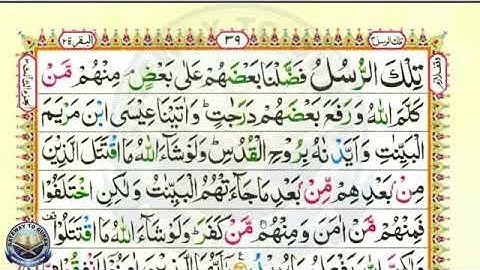 تلك الرسل ٣ ٣٩ البقرة ٢
تِلْكَ الرُّسُلُ فَضَّلْنَا بَعْضَهُمْ عَلٰى بَعْضٍ ۘ مِنْهُمْ مَّنْ
كَلَّمَ اللّٰهُ وَ رَفَعَ بَعْضَهُمْ دَرَجٰتٍ ؕ وَ اٰتَيْنَا عِيْسَى ابْنَ مَرْيَمَ
الْبَيِّنٰتِ وَ اَيَّدْنٰهُ بِرُوْحِ الْقُدُسِ ؕ وَ لَوْ شَآءَ اللّٰهُ مَا اقْتَتَلَ الَّذِيْنَ
مِنْۢ بَعْدِهِمْ مِّنْۢ بَعْدِ مَا جَآءَتْهُمُ الْبَيِّنٰتُ وَ لٰكِنِ اخْتَلَفُوْا
فَمِنْهُمْ مَّنْ اٰمَنَ وَ مِنْهُمْ مَّنْ كَفَرَ ؕ وَ لَوْ شَآءَ اللّٰهُ مَا اقْتَتَلُوْا